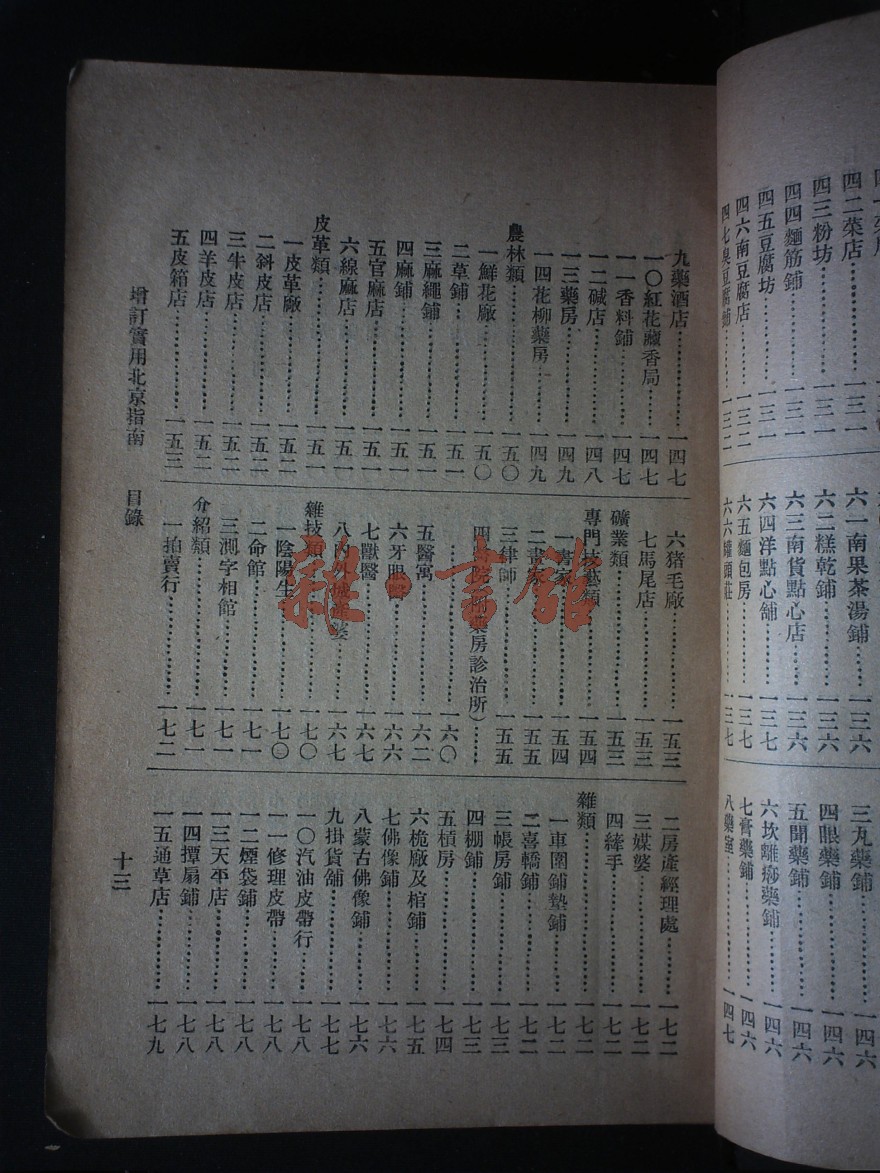 四二菜店………一三一
四三粉坊………一三一
四四麵筋鋪………一三一
四五豆腐坊………一三一
四六南豆腐店………一三二
四七臭豆腐鋪………一三二
六一南果茶湯鋪………一三六
六二糕乾鋪………一三六
六三南貨點心店………一三六
六四洋點心舖………一三七
六五麵包房………一三七
六六罐頭莊………一三七
三丸藥鋪………一四六
四眼藥鋪………一四六
五聞藥鋪………一四六
六坎離藥鋪………一四六
七膏藥鋪………一四六
八藥室………一四七
九藥酒店………一四七
一〇紅花麝香局………一四七
一一香料鋪………一四七
一二碱店………一四八
一三藥房………一四九
一四花柳藥房………一四九
農林類………一五〇
一鮮花廠………一五〇
二草鋪………一五一
三麻繩鋪………一五一
四麻鋪………一五一
五官麻店………一五一
六線麻店………一五一
皮革類………一五一
一皮革廠………一五二
二斜皮店………一五二
三牛皮店………一五二
四羊皮店………一五二
五皮箱店………一五三
六猪毛廠………一五三
七馬尾店………一五三
礦業類………一五三
專門技藝類………一五四
一書家………一五四
二畫家………一五五
三律師………一五五
四藥房診治所）……
………一六〇
五醫寓………一六二
六牙眼醫………一六六
七獸醫………一六七
八內外城產婆………一六七
雜技類………一七〇
一陰陽生………一七〇
二命館………一七一
三測字相館………一七一
介紹類………一七一
一拍賣行………一七二
二房產經理處………一七二
三媒婆………一七二
四縴手………一七二
雜類………一七二
一車圍鋪墊鋪………一七二
二喜轎鋪………一七二
三帳房鋪………一七三
四棚鋪………一七三
五槓房………一七四
六桅廠及棺鋪………一七五
七佛像鋪………一七六
八蒙古佛像鋪………一七六
九掛貨舖………一七七
一〇汽油皮帶行………一七八
一一修理皮帶………一七八
一二煙袋鋪………一七八
一三天平店………一七八
一四撣扇鋪………一七八
一五通草店………一七九
增訂實用北京指南 目錄 十三
雜·书館